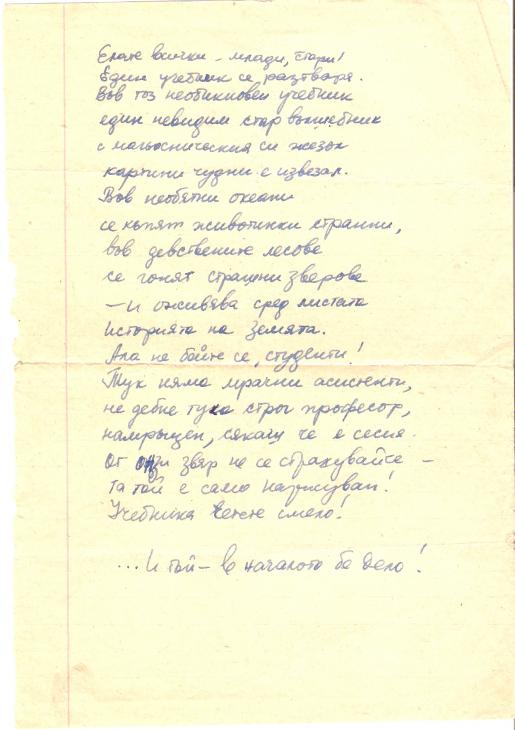 Елате всички – млади, стари!
Един учебник се разтваря.
Във тоз необикновен учебник
един невидим стар вълшебник
с магьосническия си жезъл
картини чудни е извезал.
Във необятни океани
се къпят животинки странни,
във девствените лесове
се гонят страшни зверове
– и оживява сред листата
историята на Земята.
Ала не бойте се, студенти!
Тук няма мрачни асистенти,
не дебне тука строг професор,
намръщен, сякаш че е сесия.
От онзи звяр не се страхувайте –
та той е само нарисуван!
Учебника четете смело!
...И той – в началото бе дело!